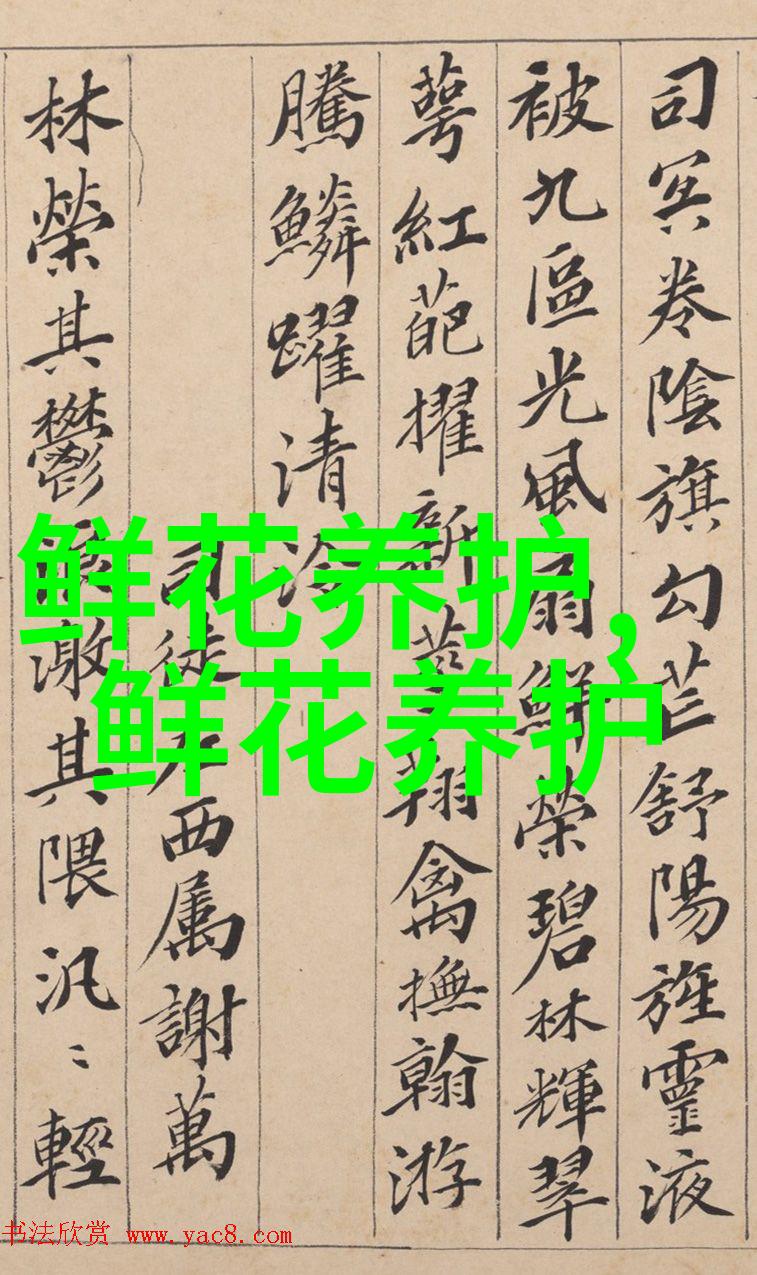 司冥卷陰旗勾芒舒陽旌靈液
被九區光風扇鮮榮碧林輝翠
萼紅葩擢新莖翔禽撫翰游
騰鱗躍清泠
司徒左西属謝萬
林榮其鬱浪激其隈汎〻輕
鲜花养护,
鲜花养护
书法欣赏 www.yac8.com